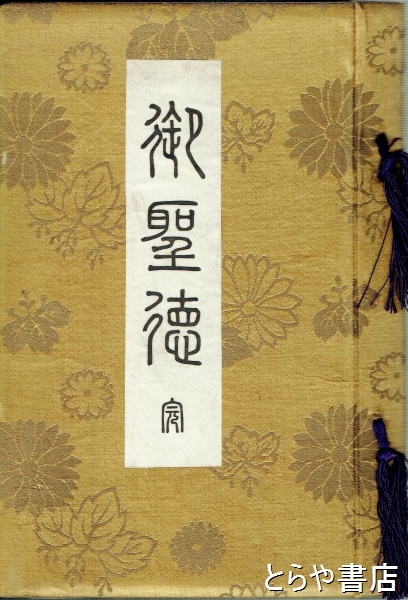 御聖徳 完
とらや書店